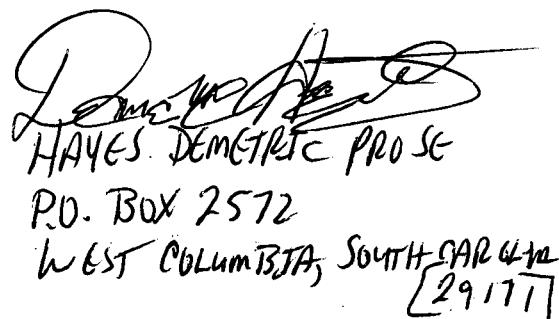 Demetric Hayes
HAYES. DEMETRIC PRO SE
P.O. BOX 2572
WEST COLUMBIA, SOUTH CAROLINA
[29171]